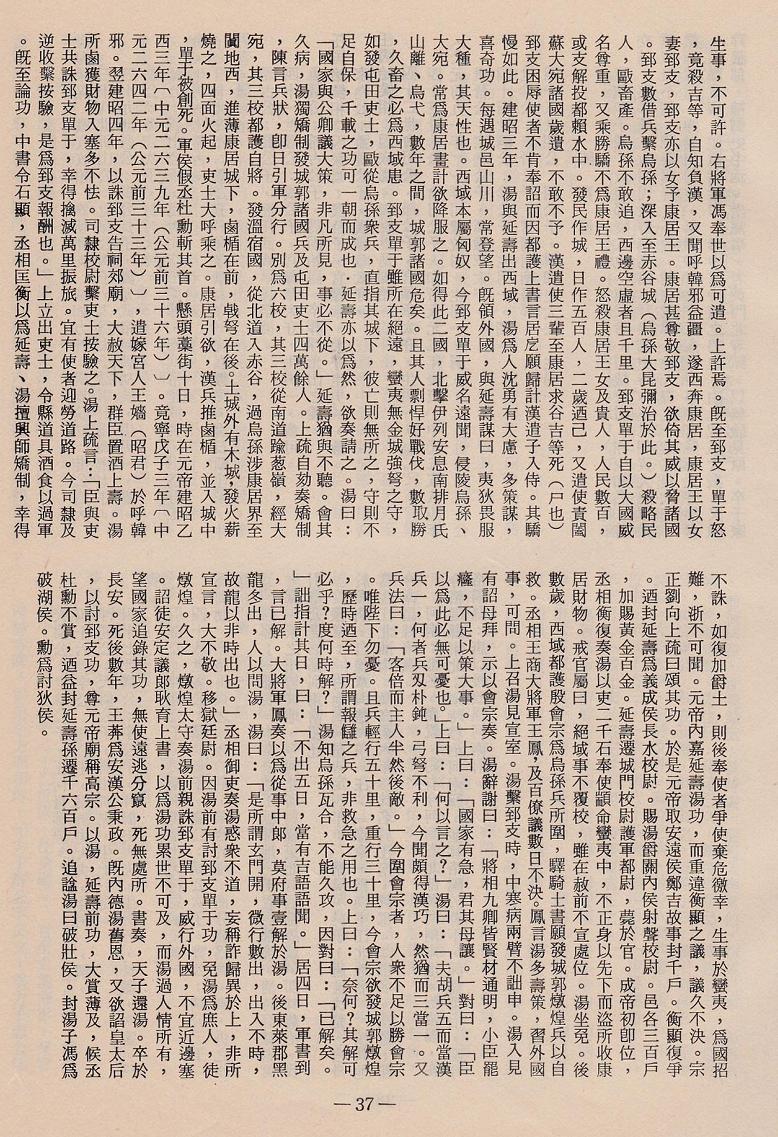 生事，不可許。右將軍馮奉世以爲可遣。上許焉。旣至郅支，單于怒
，竟殺吉等，自知負漢，又聞呼韓邪益疆，遂西奔康居，康居王以女
妻郅支，郅支亦以女予康居王。康居甚尊敬郅支，欲倚其威以脅諸國
。郅支數借兵擊烏孫；深入至赤谷城（烏孫大昆彌治於此。）殺略民
人，毆畜產。烏孫不敢追，西邊空虛者且千里。郅支單于自以大國威
名尊重，又乘勝驕不爲康居王禮。怒殺康居王女及貴人，人民數百，
或支解投都賴水中。發民作城，日作五百人，二歲酒己，又遣使責闔
蘇大宛諸國歲遺，不敢不予。漢遣使三輩至康居求谷吉等死（尸也）
郅支困辱使者不肯奉詔而因都護上書言居戹願歸計漢遣子入侍。其驕
慢如此。建昭三年，湯與延壽出西域，湯爲人沈勇有大慮，多策謀，
喜奇功。每過城邑山川，常登望。旣領外國，與延壽謀曰，夷狄畏服
大種，其天性也。西域本屬匈奴，今郅支單于威名遠聞，侵陵烏孫、
大宛。常爲康居畫計欲降服之。如得此二國，北擊伊列安息南排月氏
山離、烏弋，數年之間，城郭諸國危矣。且其人剽悍好戰伐，數取勝
，久畜之必爲西域患。郅支單于雖所在絕遠，蠻夷無金城強弩之守，
如發屯田吏士，毆從烏孫衆兵，直指其城下，彼亡則無所之，守則不
足自保，千載之功可一朝而成也。延壽亦以爲然，欲奏請之。湯曰：
「國家與公卿議大策，非凡所見，事必不從。」延壽猶與不聽。會其
久病，湯獨矯制發城郭諸國兵及屯田吏士四萬餘人。上疏自劾奏矯制
，陳言兵狀，卽日引軍分行。別爲六校，其三校從南道踰葱嶺，經大
宛，其三校都護自將。發溫宿國，從北道入赤谷，過烏孫涉康居界至
闐地西，進薄康居城下，鹵楯在前，戟弩在後。土城外有木城，發火薪
燒之，四面火起，吏士大呼乘之。康居引欲，漢兵推鹵楯，並入城中
，單于被創死。軍侯假丞杜勳斬其首。懸頭藁街十日，時在元帝建昭乙
西三年〔中元二六三九年（公元前三十六年）〕。竟寧戊子三年〔中
元二六四二年（公元前三十三年）〕，遣嫁宮人王嬙（昭君）於呼韓
邪。翌建昭四年，以誅郅支告祠郊廟，大赦天下，群臣置酒上壽。湯
所鹵獲財物入塞多不怯。司隸校尉繫吏士按驗之。湯上疏言：「臣與吏
士共誅郅支單于，幸得擒滅萬里振旅。宜有使者迎勞道路。今司隸及
逆收繫按驗，是爲郅支報酬也。」上立出吏士，令縣道具酒食以過軍
。旣至論功，中書令石顯，丞相匡衡以爲延壽、湯擅興師矯制，幸得
不誅，如復加爵土，則後奉使者爭使棄危徼幸，生事於蠻夷，爲國招
難，浙不可聞。元帝內嘉延壽湯功，而重違衡顯之議，議久不決。宗
正劉向上疏曰頌其功。於是元帝取安遠侯鄭吉故事封千戶。衡顯復爭
。迺封延壽爲義成侯長水校尉。賜湯爵關內侯射聲校尉。邑各三百戶
，加賜黃金百金。延壽遷城門校尉護軍都尉，薨於官。成帝初卽位，
丞相衡復奏湯以吏二千石奉使顓命蠻夷中，不正身以先下而盜所收康
居財物。戒官屬曰，絕域事不覆校，雖在赦前不宜處位。湯坐免。後
數歲，西域都護殷會宗爲烏孫兵所圍，驛騎士書願發城郭燉煌兵以自
救。丞相王商大將軍王鳳，及百僚議數日不決。鳳言湯多壽策，習外國
事，可問。上召湯見宣室。湯擊郅支時，中寒病兩臂不詘申。湯入見
有詔毋拜，示以會宗奏。湯辭謝曰：「將相九卿皆賢材通明，小臣罷
癃，不足以策大事。」上曰：「國家有急，君其毋讓。」對曰：「臣
以爲此必無可憂也。」上曰：「何以言之？」湯曰：「夫胡兵五而當漢
兵一，何者兵刄朴鈍，弓弩不利，今聞頗得漢巧，然猶而三當一。又
兵法曰：「客倍而主人半然後敵。」今圍會宗者，人衆不足以勝會宗
。唯陛下勿憂。且兵輕行五十里，重行三十里，今會宗欲發城郭燉煌
，歷時迺至，所謂報讎之兵，非救急之用也。上曰：「奈何？其解可
必乎？度何時解？」湯知烏孫瓦合，不能久攻，因對曰：「已解矣。
」詘指計其日，曰：「不出五日，當有吉語語聞。」居四日，軍書到
，言已解。大將軍鳳奏以爲從事中郎，莫府事壹解於湯。後東萊郡黑
龍冬出，人以問湯，湯曰：「是所謂玄門開，微行數出，出入不時，
故龍以非時出也。」丞相御吏奏湯惑衆不道，妄稱詐歸異於上，非所
宣言，大不敬。移獄廷尉。因湯前有討郅支單于功，免湯爲庶人，徒
燉煌。久之，燉煌太守奏湯前親誅郅支單于，威行外國，不宜近邊塞
。詔徒安定議郎耿育上書，以爲湯功累世不可及，而湯過人情所有，
望國家追錄其功，無使遠逃分竄，死無處所。書奏，天子還湯。卒於
長安。死後數年，王莽爲安漢公秉政。旣內德湯舊恩，又欲詔皇太后
，以討郅支功，尊元帝廟稱高宗。以湯，延壽前功，大賞薄及，候丞
杜勳不賞，迺益封延壽孫遷千六百戶。追諡湯曰破壯侯。封湯子馮爲
破湖侯。勳爲討狄侯。
—37—